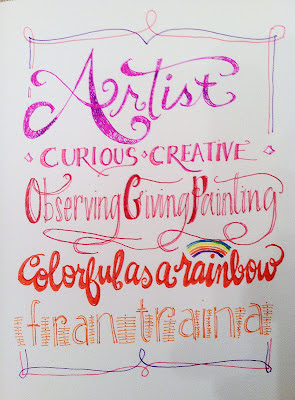 Artist
CURIOUS CREATIVE
Observing Giving Painting
Colorful as a rainbow
frantrana